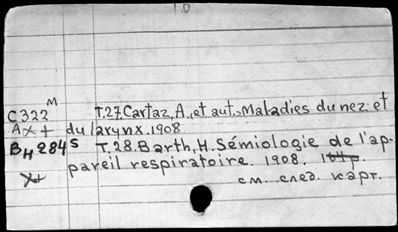 1.0
C322ᴹ T.27. Cartaz, A., et aut. Maladies du nez et
A x + du larynx. 1908
B H 284ˢ T.28. Barth, H. Sémiologie de l'ap-
pareil respiratoire. 1908.
см. след. карт.